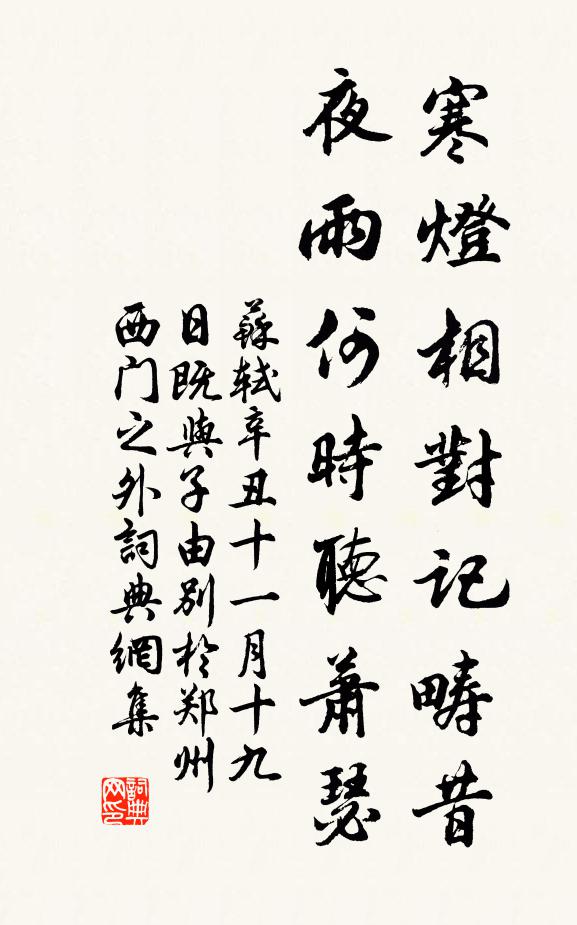 寒燈相對記疇昔
夜雨何時聽蕭瑟
蘇軾辛丑十一月十九
日既與子由別於郑州
西门之外詞典網集
詞典網印